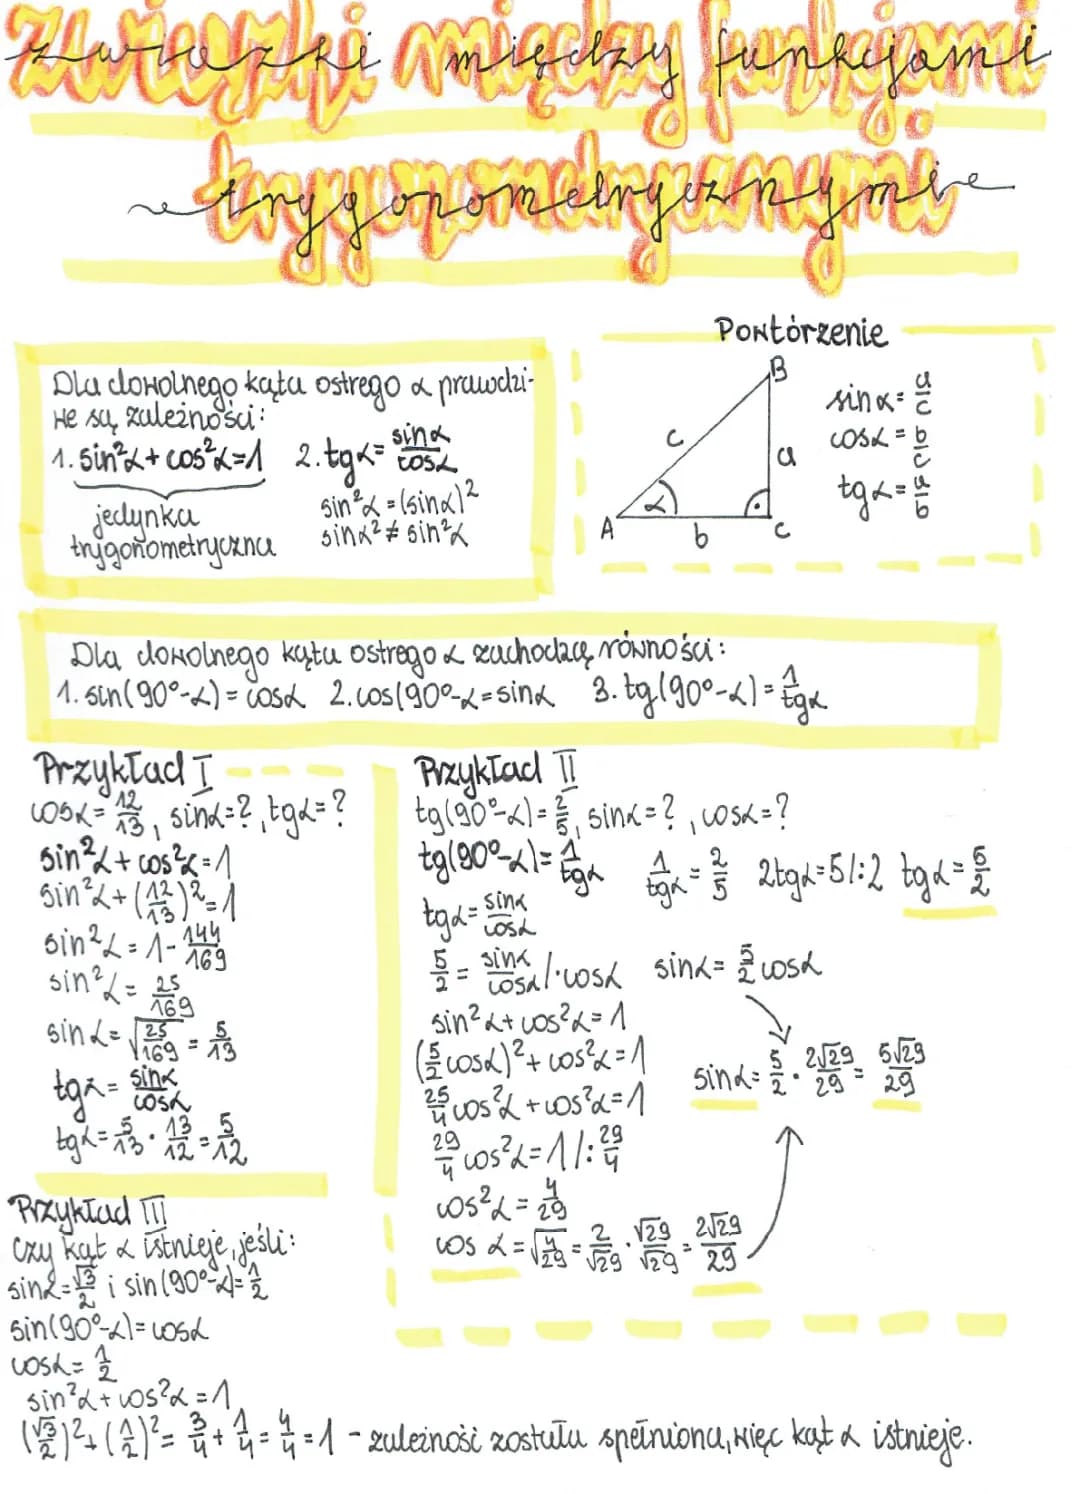 Związki między funkcjami
trygonometrycznymi
Dla dowolnego kąta ostrego α prawdzi-
we są zależności:
1. sin²α + cos²α = 1
jedynka
trygonometryczna
2. tgα = sinα/cosα
sin²α = (sinα)²
sinα² ≠ sin²α
Powtórzenie
B
c
a
α
A
b
C
sinα = a/c
cosα = b/c
tgα = a/b
Dla dowolnego kąta ostrego α zachodzą równości:
1. sin(90°-α) = cosα 2. cos(90°-α = sinα 3. tg(90°-α) = 1/tgα
Przykład I
cosα = 12/13, sinα = ?, tgα = ?
sin²α + cos²α = 1
sin²α + (12/13)² = 1
sin²α = 1 - 144/169
sin²α = 25/169
sinα = √25/169 = 5/13
tgα = sinα/cosα
tgα = 5/13 · 13/12 = 5/12
Przykład II
tg(90°-α) = 2/5, sinα = ?, cosα = ?
tg(90°-α) = 1/tgα 1/tgα = 2/5 2tgα = 5 /:2 tgα = 5/2
tgα = sinα/cosα
5/2 = sinα/cosα /·cosα sinα = 5/2 cosα
sin²α + cos²α = 1
(5/2 cosα)² + cos²α = 1
sinα = 5/2 · 2√29/29 = 5√29/29
25/4 cos²α + cos²α = 1
29/4 cos²α = 1 /: 29/4
cos²α = 4/29
cos α = √4/29 = 2/√29 · √29/√29 = 2√29/29
Przykład III
Czy kąt α istnieje, jeśli:
sinα = √3/2 i sin(90°-α) = 1/2
sin(90°-α) = cosα
cosα = 1/2
sin²α + cos²α = 1
(√3/2)² + (1/2)² = 3/4 + 1/4 = 4/4 = 1 - zależność została spełniona, więc kąt α istnieje.